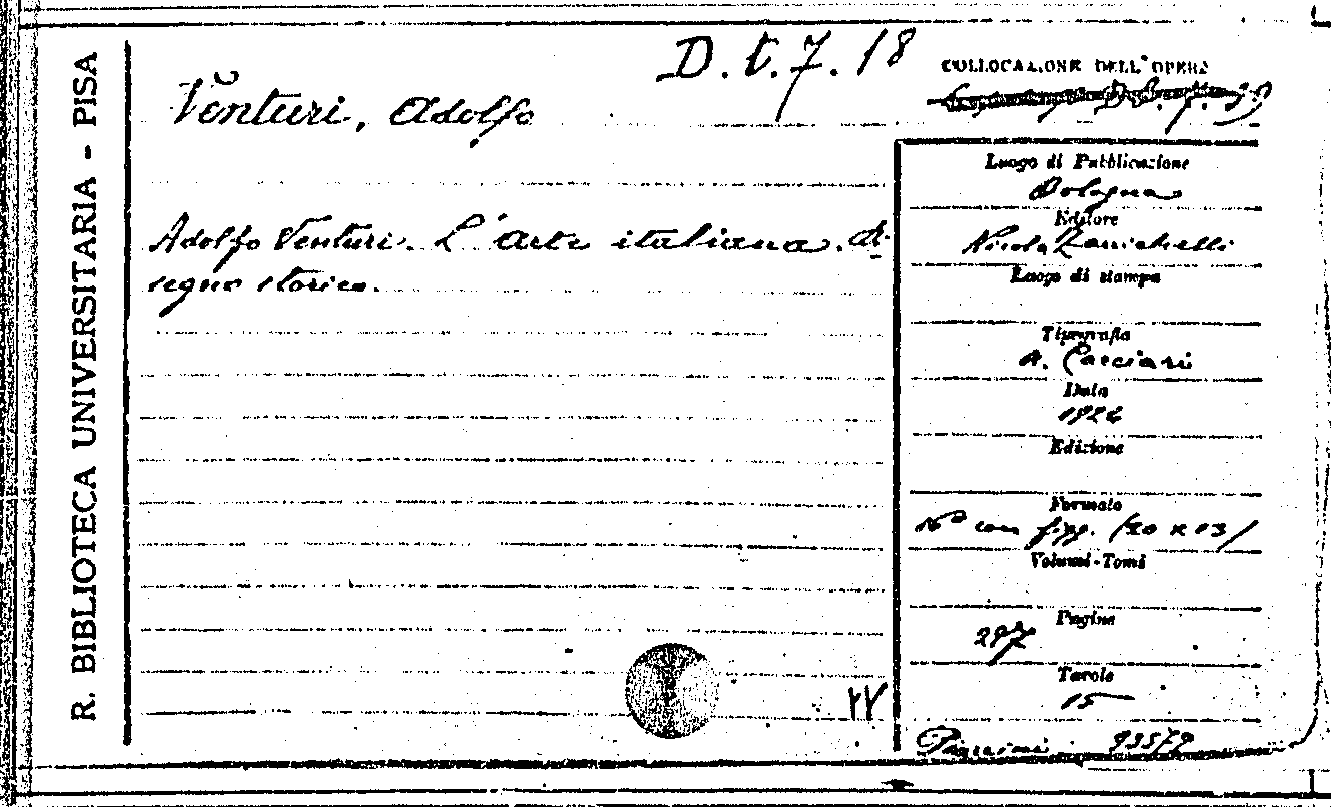 R. BIBLIOTECA UNIVERSITARIA - PISA
D. t. 7. 18
COLLOCAZIONE DELL'OPERA
Venturi, Adolfo
Adolfo Venturi. L'arte italiana. di-
segno storico.
Luogo di Pubblicazione
Bologna
Editore
Nicola Zanichelli
Luogo di stampa
Tipografia
A. Cacciari
Data
Edizione
Formato
16° con figg.
Volumi-Tomi
Pagine
287
Tavole
15
93579